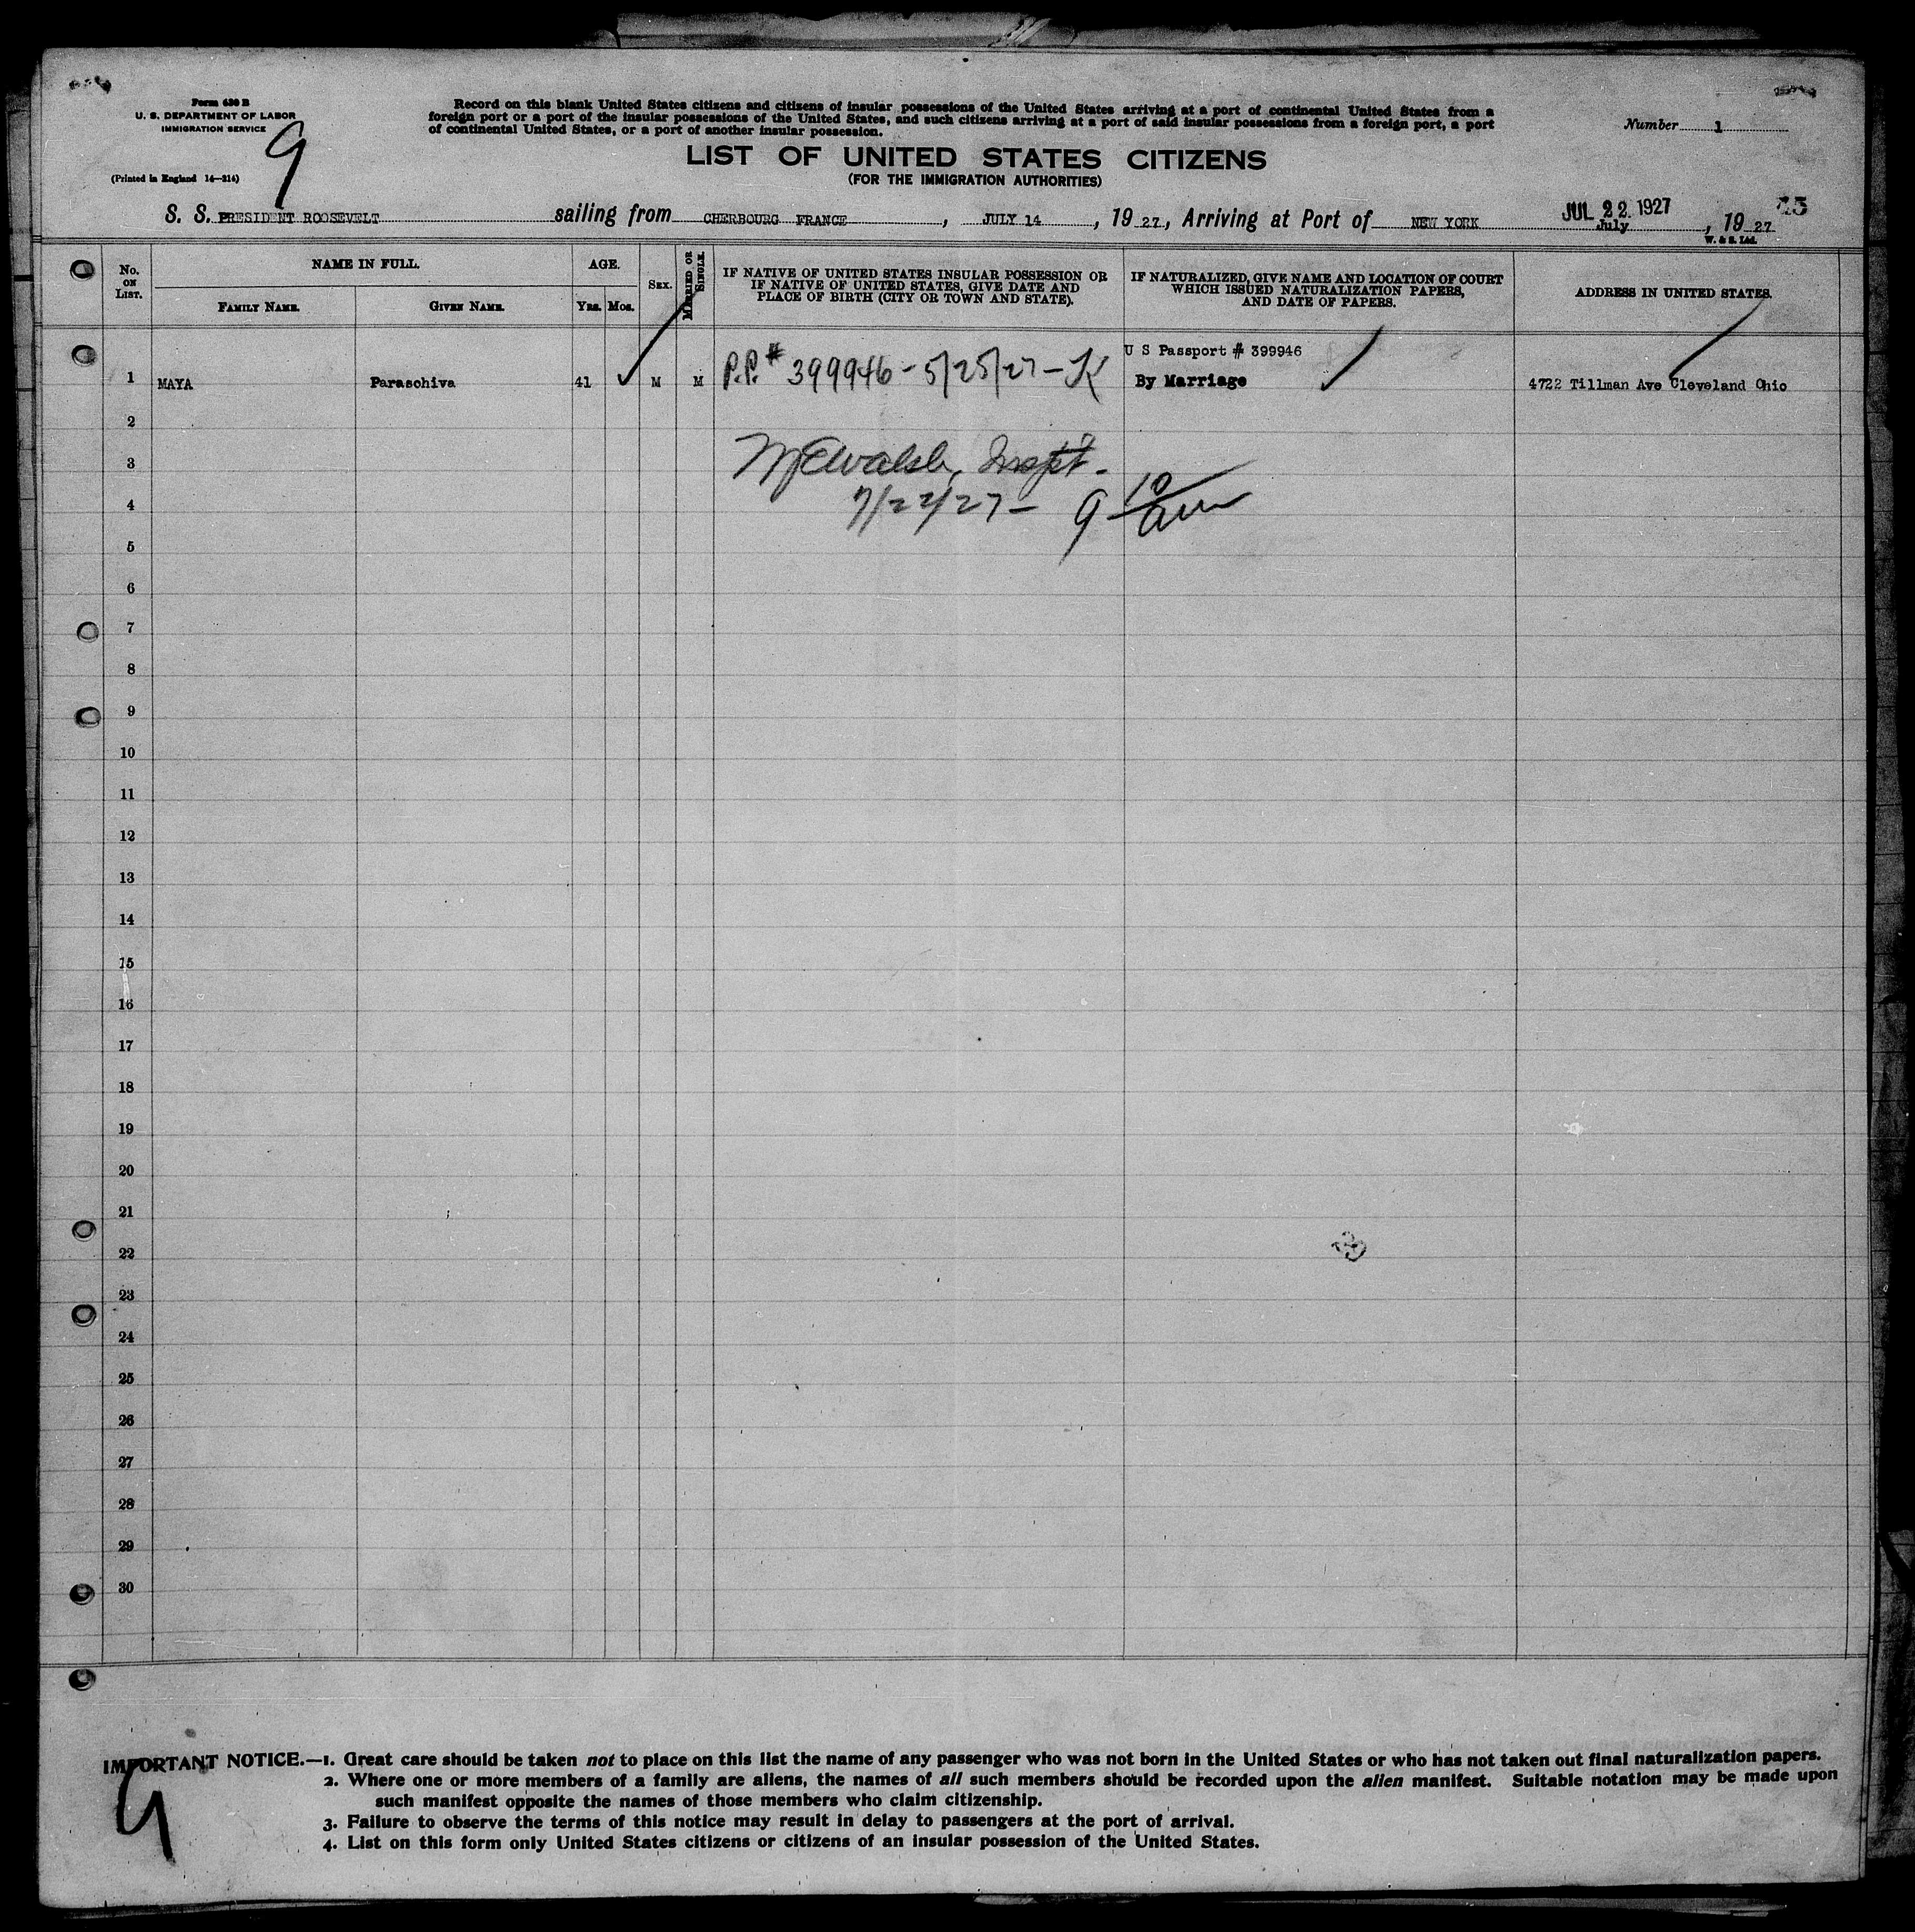 Form 630 B
U. S. DEPARTMENT OF LABOR
IMMIGRATION SERVICE
9
(Printed in England 14—214)
Record on this blank United States citizens and citizens of insular possessions of the United States arriving at a port of continental United States from a
foreign port or a port of the insular possessions of the United States, and such citizens arriving at a port of said insular possessions from a foreign port, a port
of continental United States, or a port of another insular possession.
Number 1
LIST OF UNITED STATES CITIZENS
(FOR THE IMMIGRATION AUTHORITIES)
S. S. PRESIDENT ROOSEVELT sailing from CHERBOURG FRANCE, JULY 14, 1927, Arriving at Port of NEW YORK JUL 22 1927 July, 1927
W. & S. Ltd.
No. ON LIST.
NAME IN FULL.
FAMILY NAME.
GIVEN NAME.
AGE.
YRS. MOS.
SEX.
MARRIED OR SINGLE.
IF NATIVE OF UNITED STATES INSULAR POSSESSION OR
IF NATIVE OF UNITED STATES, GIVE DATE AND
PLACE OF BIRTH (CITY OR TOWN AND STATE).
IF NATURALIZED, GIVE NAME AND LOCATION OF COURT
WHICH ISSUED NATURALIZATION PAPERS,
AND DATE OF PAPERS.
ADDRESS IN UNITED STATES.
U S Passport # 399946
1 MAYA Paraschiva 41 M M P.P.# 399946 - 5/25/27 - K By Marriage 4722 Tillman Ave Cleveland Ohio
2
3 Walsh, Inspt.
4 7/22/27 - 9 10/am
5
6
7
8
9
10
11
12
13
14
15
16
17
18
19
20
21
22
23
24
25
26
27
28
29
30
IMPORTANT NOTICE.—1. Great care should be taken not to place on this list the name of any passenger who was not born in the United States or who has not taken out final naturalization papers.
2. Where one or more members of a family are aliens, the names of all such members should be recorded upon the alien manifest. Suitable notation may be made upon
such manifest opposite the names of those members who claim citizenship.
3. Failure to observe the terms of this notice may result in delay to passengers at the port of arrival.
4. List on this form only United States citizens or citizens of an insular possession of the United States.
9